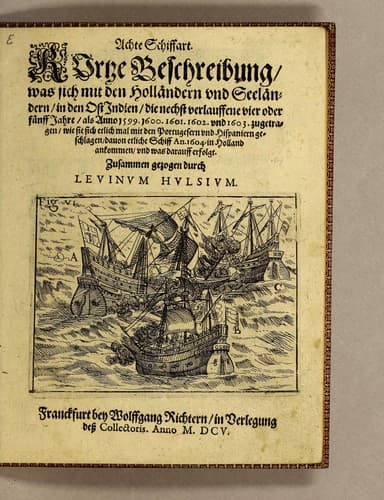 E
Achte Schiffart.
KUrtze Beschreibung/
was sich mit den Holländern vnd Seelän-
dern/in den Ost Indien/die nechst verlauffene vier oder
fünff Jahre/als Anno 1599. 1600. 1601. 1602. vnd 1603. zugetra-
gen/wie sie sich etlich mal mit den Portugesern vnd Hispaniern ge-
schlagen/dauon etliche Schiff An. 1604. in Holland
ankommen/vnd was darauff erfolgt.
Zusammen gezogen durch
LEVINVM HVLSIVM.
Fig. VI.
A
C
B
Franckfurt bey Wolffgang Richtern/in Verlegung
deß Collectoris. Anno M. DCV.